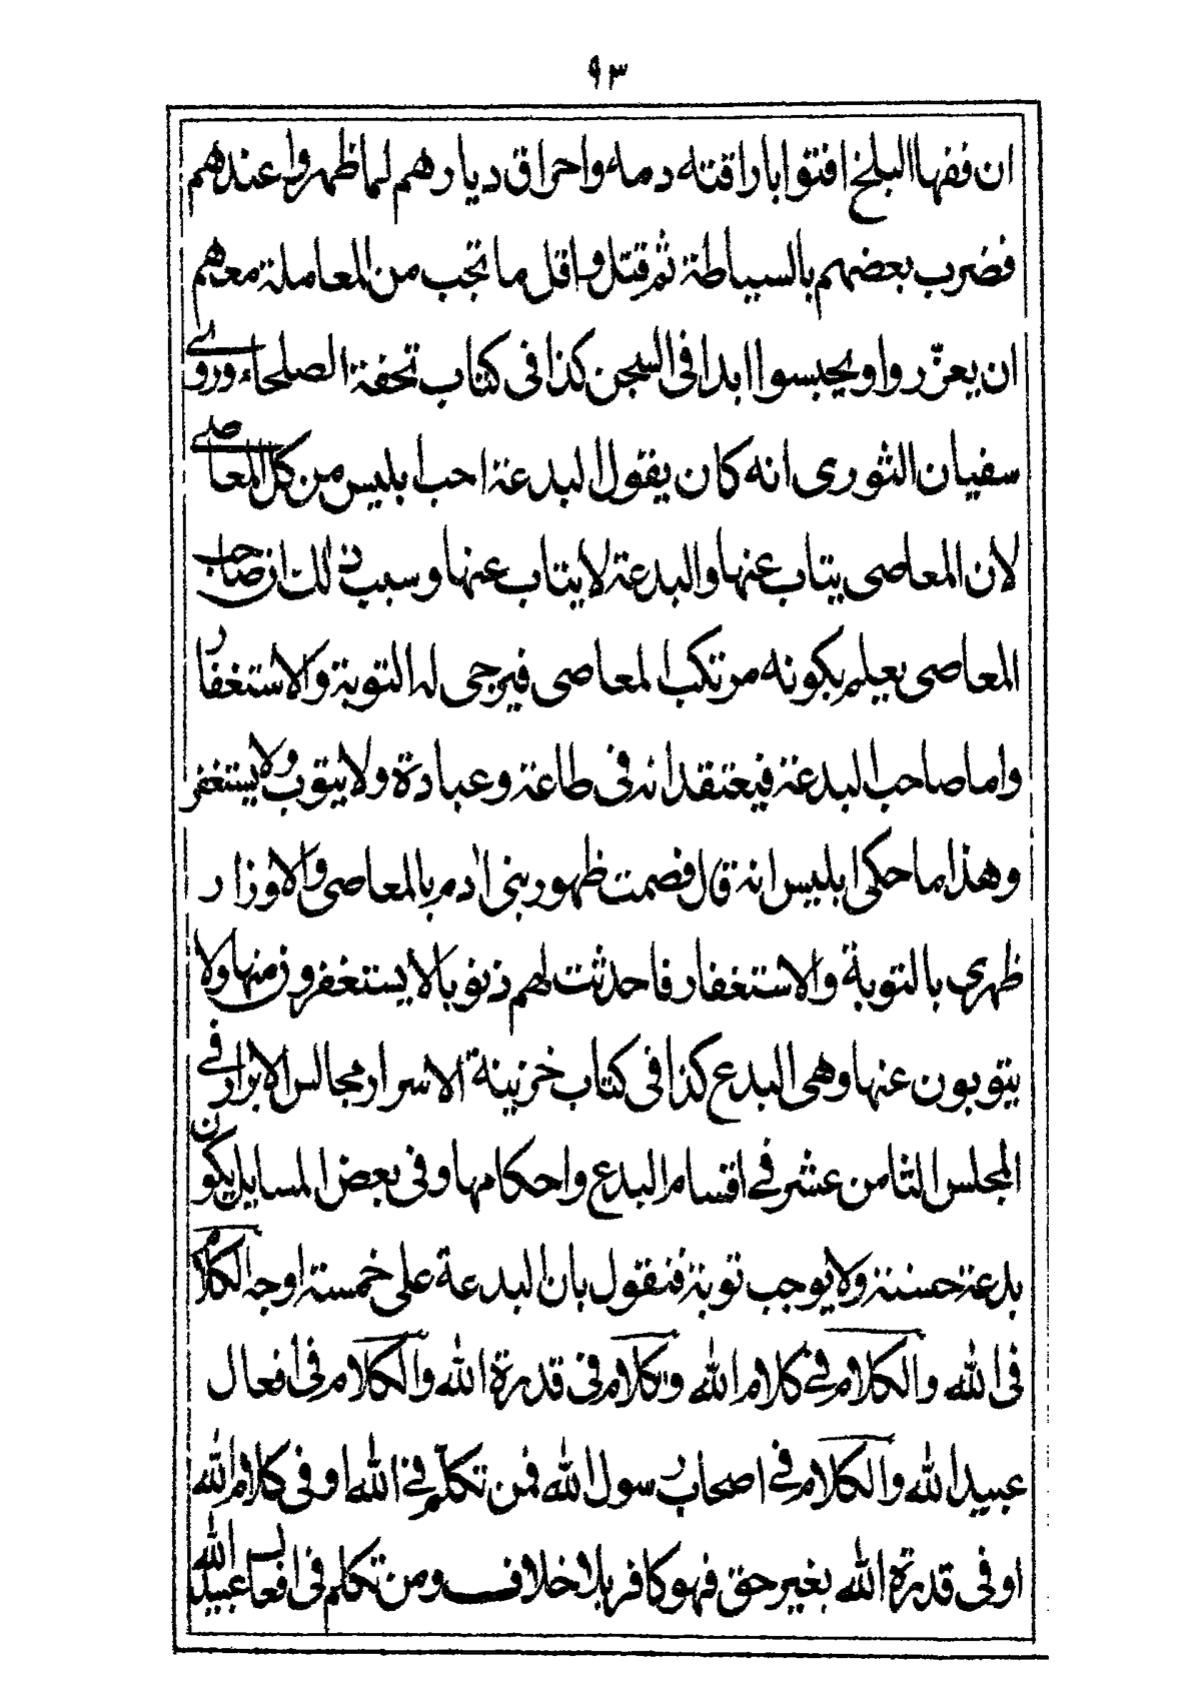 ٩٣
ان فقهاالبلخ افتوا باراقته دمه واحراق ديارهم لما ظهروا عندهم
فضرب بعضهم بالسياطة ثم قتل واقل ما تجب من المعاملة معهم
ان يعزّروا ويحبسوا ابدا فى السجن كذا فى كتاب تحفة الصلحاء وروى
سفيان الثورى انه كان يقول البدعة احب ابليس من كل المعاصى
لان المعاصى يتاب عنها والبدعة لا يتاب عنها وسبب ذلك ان صاحب
المعاصى يعلم بكونه مرتكب المعاصى فيرجى له التوبة والاستغفار
واما صاحب البدعة فيعتقد انه فى طاعة وعبادة ولا يتوب ولا يستغفر
وهذا ما حكى ابليس انه قال قصمت ظهور بنى ادم بالمعاصى والاوزار
ظهرى بالتوبة والاستغفار فاحدثت لهم ذنوبا لا يستغفرون منها ولا
يتوبون عنها وهى البدع كذا فى كتاب خزينة الاسرار مجالس الابرار فى
المجلس الثامن عشر فى اقسام البدع واحكامها وفى بعض المسايل يكون
بدعة حسنة ولا يوجب توبة فنقول بان البدعة على خمسة اوجه الكلام
فى الله والكلام فى كلام الله وكلام فى قدرة الله والكلام فى افعال
عبيد الله والكلام فى اصحاب رسول الله فمن تكلّم فى الله او فى كلام الله
او فى قدرة الله بغير حق فهو كافر بلا خلاف ومن تكلم فى افعال عبيد الله